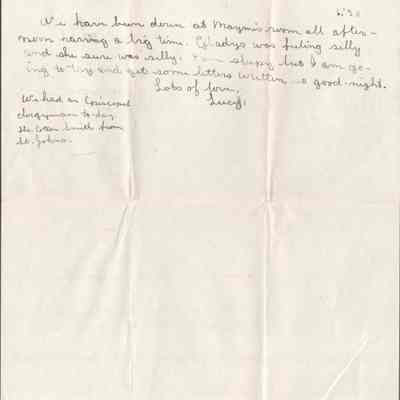 We have been down at Mayme's room all after-
noon having a big time. Gladys was feeling silly
and she sure was silly. I am sleepy but I am go-
ing to try and get some letters written so good-night.
Lots of love,
Lucy.
We had an Episcopal
clergyman to-day
Smith from
St. Johns.